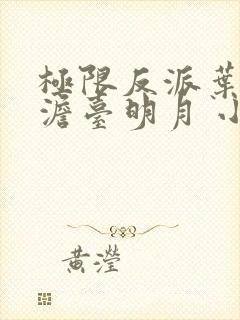 極限反派葉
澹臺明月小
黃瀅